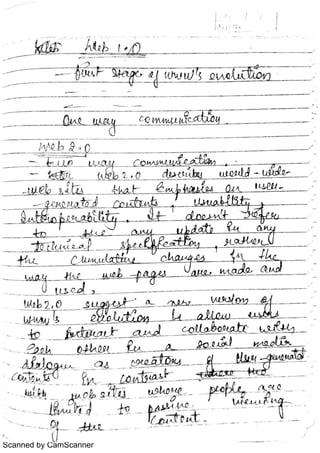 Web 1.0
- first stage of WWW's evolution
One way communication.
Web 2.0
- two way communication.
- web 2.0 describes world-wide
-web sites that Emphasies on user-
-generated contents, usability,
Interoperability. It doesn't refer
to any update in any
technical specification, rather
the Cumulative changes in the
way the web-pages are made and
used.
Web 2.0 suggest a new version of
WWW's evolution to allow users
to interact and collaborate with
Each other in a social media
dialogue as creators of User-generated
contents in contrast
with web sites whose people are
limited to passive viewing
of the Content.
Scanned by CamScanner